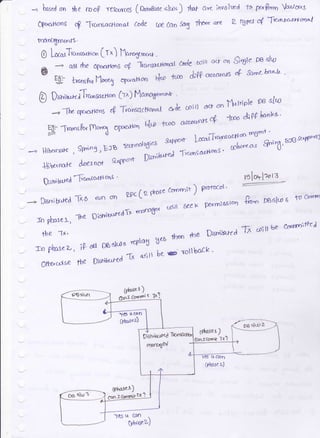 → based on the no.of resources (Database s/ws) that are involved to perform various
operations of Transactional code we can say there are 2 types of Transactional
managements.
① Local Transaction (Tx) Management.
→ all the operations of Transactional code will act on Single DB s/w
Eg:- transfer Money operation b/w two diff accounts of same bank.
② Distributed Transaction (Tx) Management.
→ The operations of Transactional code will act on Multiple DB s/w
Eg: Transfer Money operation b/w two accounts of two diff banks.
→ Hibernate, Spring, EJB technologies support Local Transaction mgmt.
Hibernate doesnot support Distributed Transactions. whereas Spring, EJB supports
Distributed Transactions.
15/04/2013
→ Distributed Txs run on 2PC (2 phase commit) protocol.
In phase1, The Distributed Tx manager will seek permission from DB s/ws to commit
the Tx.
In phase2, if all DB s/ws replay yes then the Distributed Tx will be committed
Otherwise the Distributed Tx will be rollback.
DB s/w1
(phase1)
can I commit Tx?
yes u can
(phase2)
Distributed Transaction
manager
(phase1)
can I commit Tx?
DB s/w2
yes u can
(phase2)
DB s/w3
(phase1)
can I commit Tx?
yes u can
(phase2)